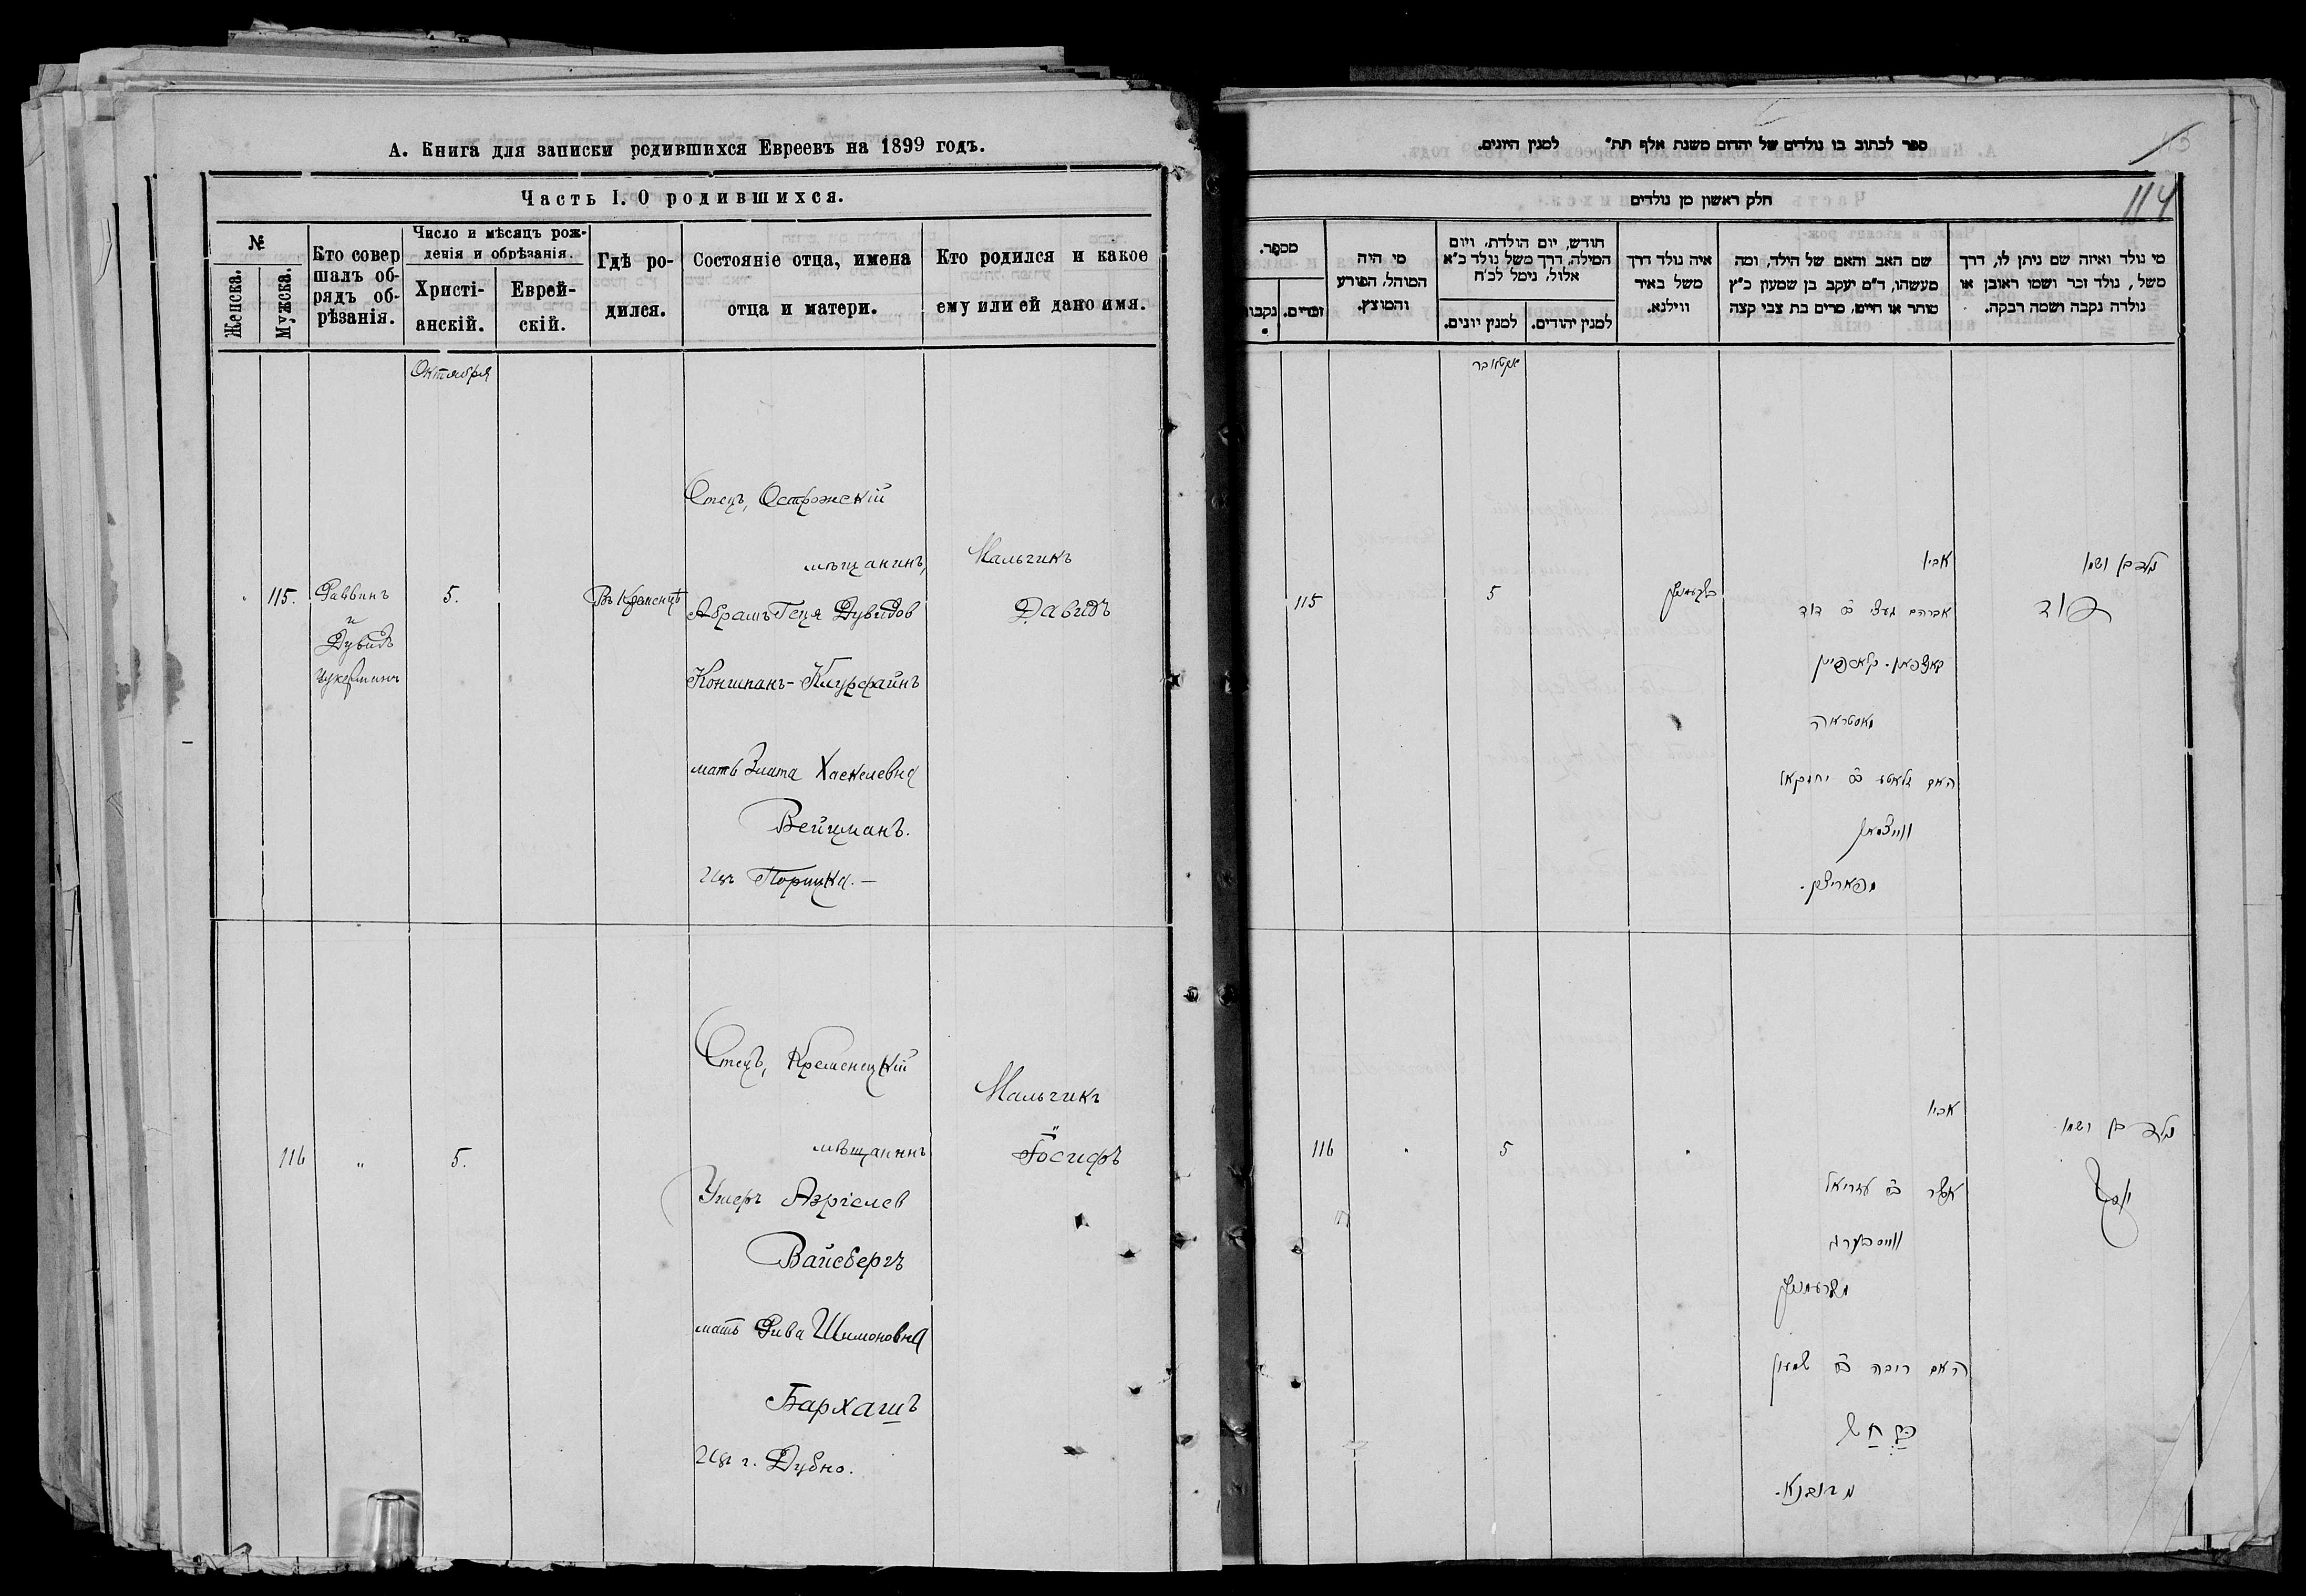 А. Книга для записки родившихся Евреевъ на 1899 годъ.
Часть I. О родившихся.
№
Женска.
Мужска.
Кто совер
шалъ об-
рядъ об-
рѣзанія.
Число и мѣсяцъ рож-
денія и обрѣзанія.
Христі-
анскій.
Еврей-
скій.
Гдѣ ро-
дился.
Состояніе отца, имена
отца и матери.
Кто родился и какое
ему или ей дано имя.
Октября
115.
Раввинъ
и
Дувидъ
Цукерманъ
5.
Въ Кременцѣ
Отецъ, Острожскій
мѣщанинъ,
Абрамъ Геця Дувидов
мать Злата Хаскелевна
Вейцманъ.
Изъ Порицка. —
Мальчикъ
Давидъ
116
"
5.
Отецъ, Кременецкій
мѣщанинъ
Ушеръ Азріелев
Вайсбергъ
мать Рива Шимоновна
Бархашъ
Изъ г. Дубно.
Мальчикъ
Іосифъ
ספר לכתוב בו נולדים של יהדום משנת אלף תת״ למנין היונים.
114
חלק ראשון מן נולדים
מספר.
נקבות
זכרים.
מי היה
המוהל, הפורע
והמוצץ.
חודש, יום הולדת, ויום
המילה, דרך משל נולד כ״א
אלול, נימל לכ״ח
למנין יונים.
למנין יהודים.
איה נולד דרך
משל באיר
ווילנא.
שם האב והאם של הילד, ומה
מעשהו, ד״מ יעקב בן שמעון כ״ץ
סוחר או חייט, מרים בת צבי קצה
מי נולד ואיזה שם ניתן לו, דרך
משל, נולד זכר ושמו ראובן או
נולדה נקבה ושמה רבקה.
אקטאבר
115
5
אביו
אברהם געצי ב״ר דוד
מאסטראה
האם זלאטע ב״ר יחזקאל
ווייצמאן
מפאריצק.
נולד בן ושמו
דוד
116
5
אביו
אשר ב״ר עזריאל
ווייסבערג
מקרעמניץ
האם ריבה ב״ר שמעון
מדובנא.
נולד בן ושמו
יוסף